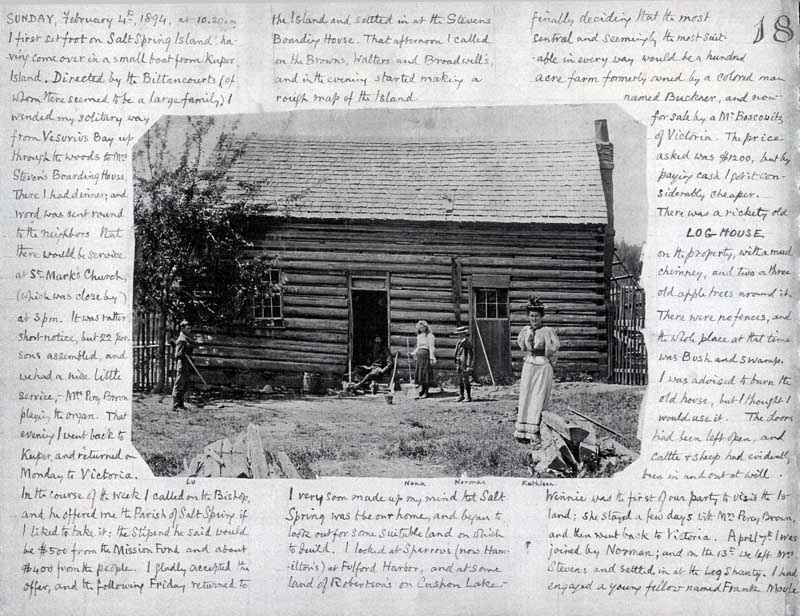 SUNDAY, February 4th, 1894, at 10.20am
I first set foot on Salt Spring Island, ha-
ving come over in a small boat from Kuper
Island. Directed by the Bittancourts (of
whom there seemed to be a large family) I
wended my solitary way
from Vesuvius Bay up
through the woods to Mrs
Steven's Boarding House.
There I had dinner, and
word was sent round
to the neighbors that
there would be service
at St Mark's Church,
(which was close by)
at 3pm. It was rather
short notice, but 22 per-
sons assembled, and
we had a nice little
service, Mrs Percy Brown
playing the organ. That
evening I went back to
Kuper, and returned on
Monday to Victoria.
In the course of the week I called on the Bishop,
and he offered me the Parish of Salt Spring if
I liked to take it: the stipend he said would
be $500 from the Mission Fund and about
$400 from the people. I gladly accepted the
offer, and the following Friday returned to
the Island and settled in at the Stevens
Boarding House. That afternoon I called
on the Browns, Walters and Broadwells,
and in the evening started making a
rough map of the Island
Lu
Nona
Norman
Kathleen
I very soon made up my mind that Salt
Spring was to be our home, and began to
look out for some suitable land on which
to build. I looked at Sparrows (now Ham-
ilton's) at Fulford Harbor, and at some
land of Robertson's on Cushon Lake
finally deciding that the most
central and seemingly the most suit-
able in every way would be a hundred
acre farm formerly owned by a colored man
named Buckner, and now
for sale by a Mr Boscowitz
of Victoria. The price
asked was $1200, but by
paying cash I got it con-
siderably cheaper.
There was a rickety old
LOG HOUSE
on the property, with a mud
chimney, and two or three
old apple trees around it.
There were no fences, and
the whole place at that time
was Bush and swamp.
I was advised to burn the
old house, but I thought I
would use it. The doors
had been left open, and
cattle & sheep had evidently
been in and out at will.
Winnie was the first of our party to visit the Is-
land; she stayed a few days with Mrs Percy Brown,
and then went back to Victoria. April 7th I was
joined by Norman; and on the 13th we left Mrs
Stevens and settled in at the Log Shanty. I had
engaged a young fellow named Frank
18